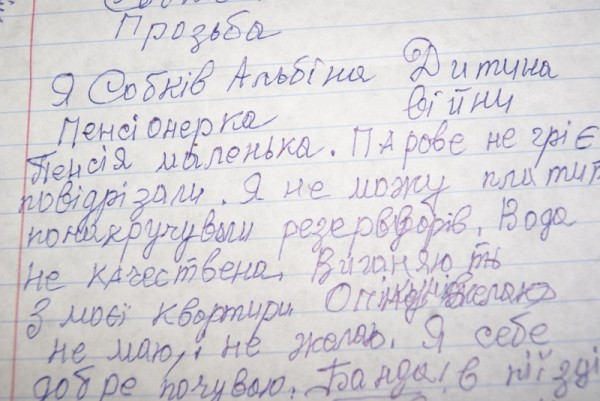 Прозьба
Я Собків Альбіна Дитина
Пенсіонерка війни
Пенсія маленька. Парове не гріє
повідрізали. Я не можу платит
понакручували резерворів. Вода
не качествена. Виганяють
З моєї квартири
не маю, і не желаю. Я себе
добре почуваю. Банда! в під'їзді